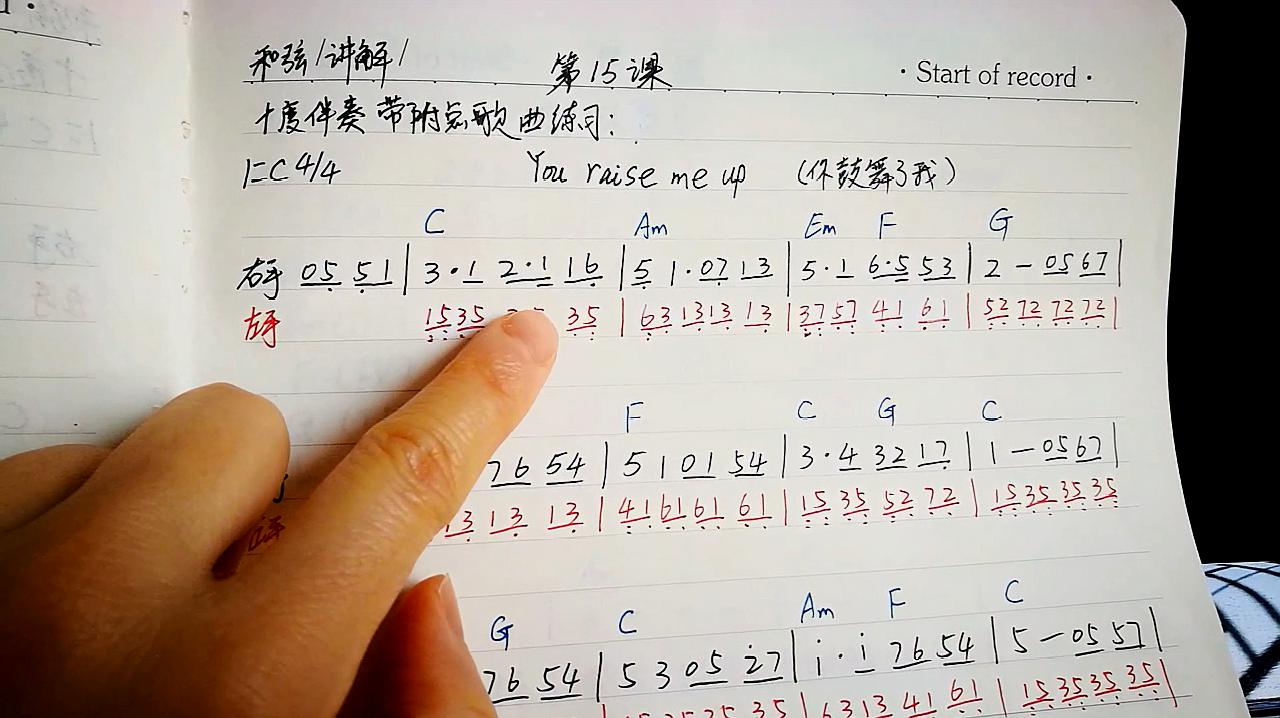 和弦/讲解/ 第15课 · Start of record ·
十度伴奏 带附点歌曲练习:
1=C 4/4 You raise me up (你鼓舞了我)
C Am Em F G
右手 05 51 | 3·1 2·1 16 | 5 1·07 13 | 5·1 6·5 53 | 2 — 05 67 |
左手 1535 35 | 63 1313 13 | 3757 41 61 | 52 72 72 72 |
F C G C
76 54 | 5 1 01 54 | 3·4 32 17 | 1 — 0567 |
13 13 13 | 4161 61 61 | 15 35 52 72 | 15 35 35 35
G C Am F C
76 54 | 5 3 05 i7 | i·i 76 54 | 5 — 05 57 |
35 | 6313 41 61 | 15 35 35 35 |